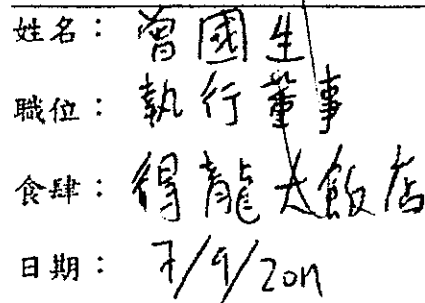 姓名：曾國生
職位：執行董事
食肆：得龍大飯店
日期：7/9/2011